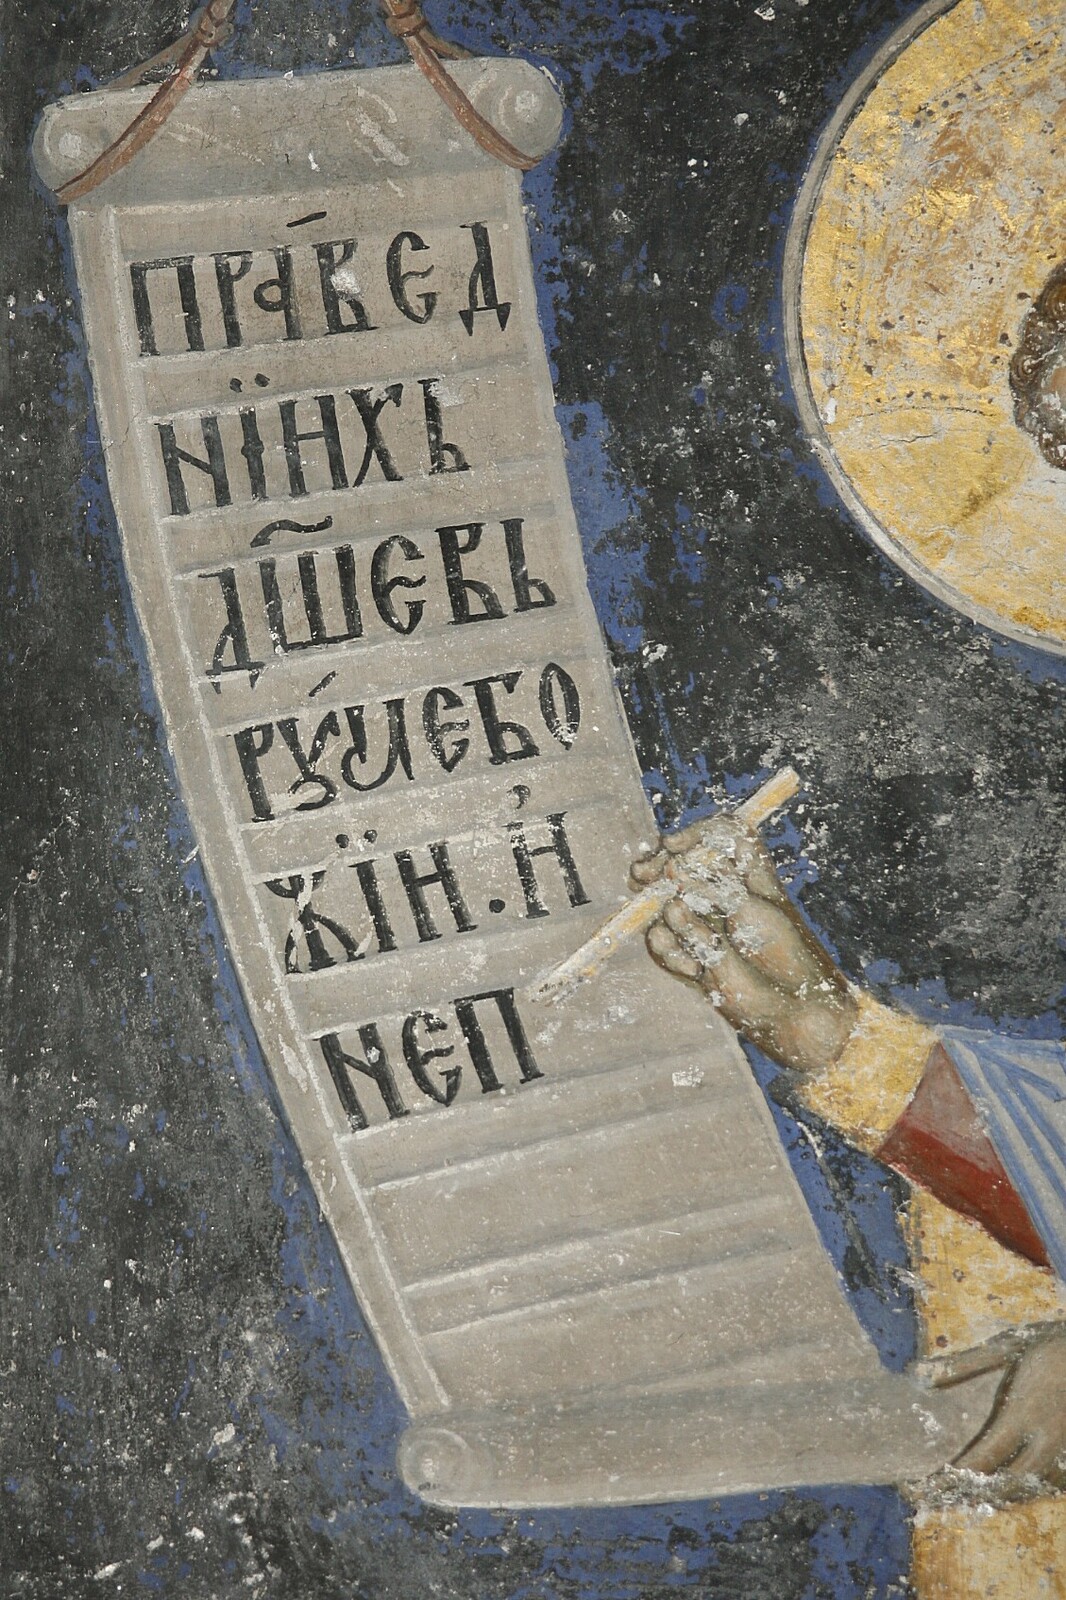 пра́вед
нїнхь
дш҃евь
рꙋ́цебо
жїн. и҆
неп